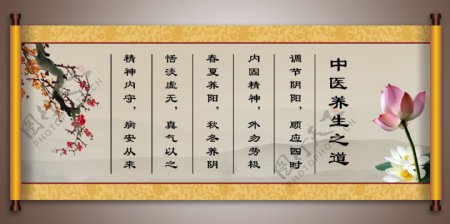 中医养生之道
调节阴阳，顺应四时
内固精神，外勿劳极
春夏养阳，秋冬养阴
恬淡虚无，真气以之
精神内守，病安从来